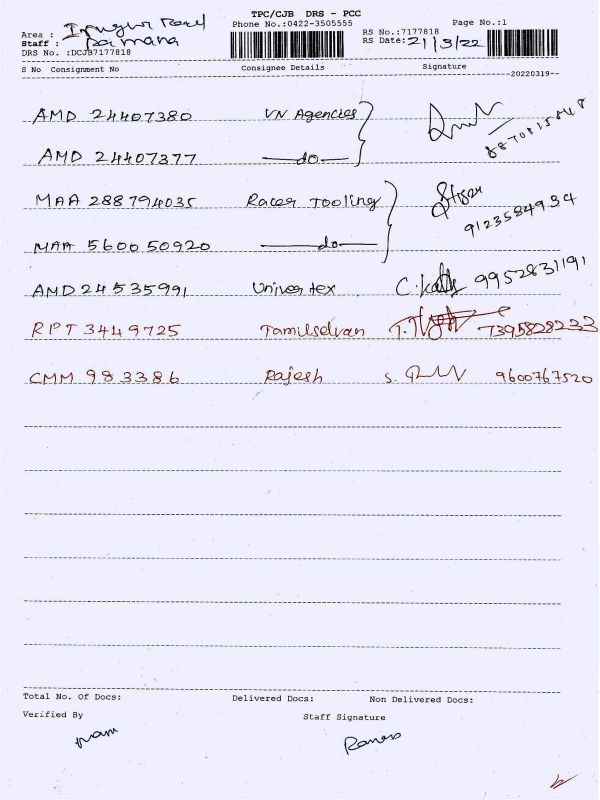 TPC/CJB DRS - PCC
Phone No.:0422-3505555
Page No.:1
Area : Irugur Road
Staff : Ramana
DRS No. :DCJB7177818
RS No.:7177818
RS Date: 21/3/22
S No Consignment No Consignee Details Signature
--20220319--
AMD 24407380 VN Agencies
AMD 24407377 —do—
MAA 288794035 Racer Tooling 9123584934
MAA 560050920 —do—
AMD 24535991 Univertex 9952831191
RPT 3449725 Tamilselvan 7395828233
CMM 983386 Rajesh 9600767520
Total No. Of Docs: Delivered Docs: Non Delivered Docs:
Verified By Staff Signature